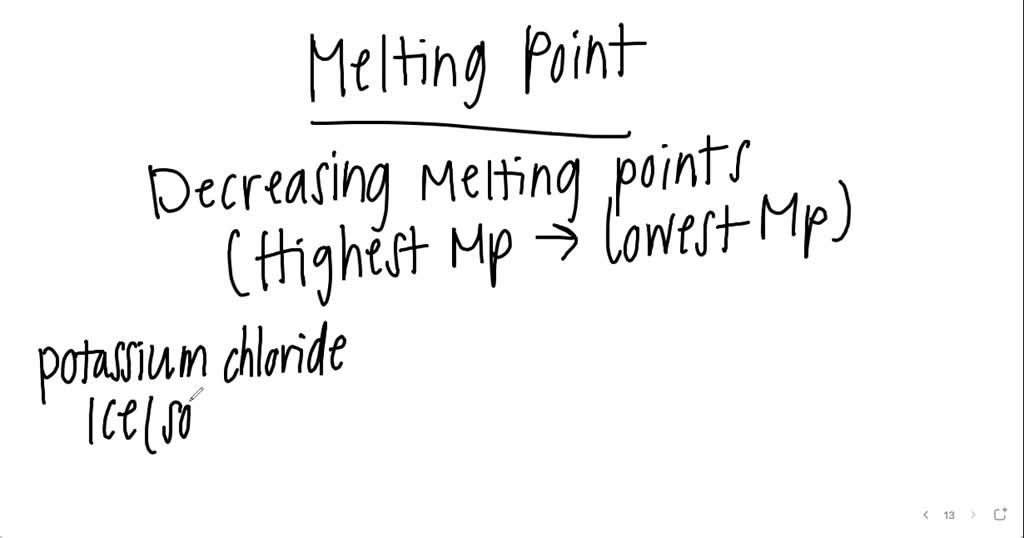 Melting Point
Decreasing Melting points
(Highest Mp → lowest Mp)
potassium chloride
Ice(so
13